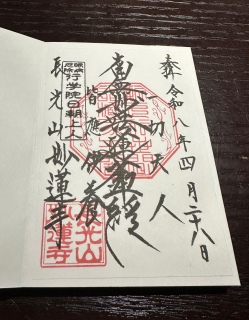 奉拝 令和八年四月二十八日
一切天人
南無妙法蓮華経
皆應供養
眼病
厄除
行学院日朝上人
長光山妙蓮寺
長光山
妙蓮寺